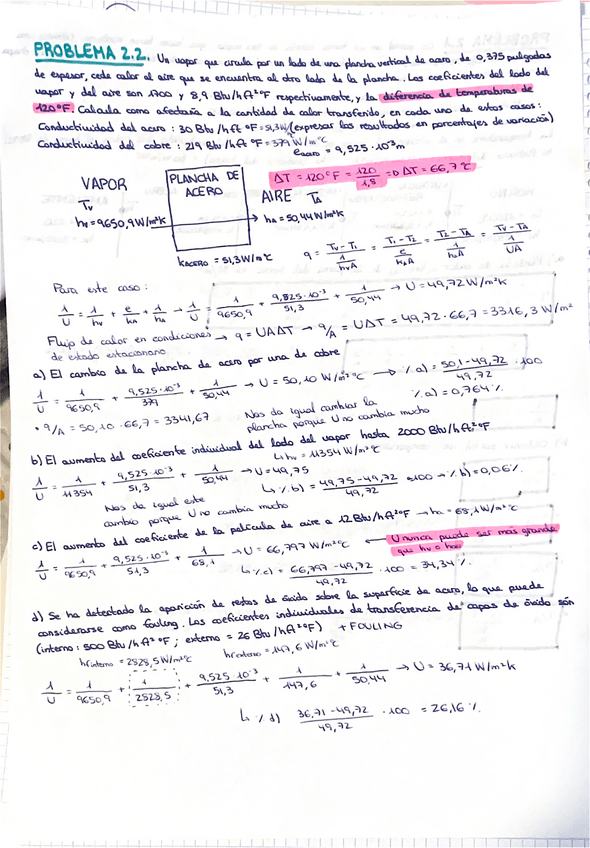 PROBLEMA 2.2. Un vapor que circula por un lado de una plancha vertical de acero, de 0,375 pulgadas
de espesor, cede calor al aire que se encuentra al otro lado de la plancha. Los coeficientes del lado del
vapor y del aire son 1700 y 8,9 Btu/hft²ºF respectivamente, y la diferencia de temperaturas de
120ºF. Calcula como afectaría a la cantidad de calor transferido, en cada uno de estos casos:
Conductividad del acero: 30 Btu/hft ºF = 51,3 W/ (expresar los resultados en porcentajes de variación)
Conductividad del cobre: 219 Btu/hft ºF = 379 W/mºC
e acero = 9,525·10⁻³m
ΔT = 120ºF = 120/1,8 => ΔT = 66,7ºC
VAPOR
Tv
hv = 9650,9 W/m²K
PLANCHA DE
ACERO
AIRE TA
hA = 50,44 W/m²K
KACERO = 51,3 W/mºC
q = Tv - T1 / 1/hvA = T1 - T2 / e/kAA = T2 - TA / 1/hAA = Tv - TA / 1/UA
Para este caso:
1/U = 1/hv + e/kA + 1/hA → 1/U = 1/9650,9 + 9,825·10⁻³/51,3 + 1/50,44 → U = 49,72 W/m²K
Flujo de calor en condiciones → q = UAΔT → q/A = UΔT = 49,72·66,7 = 3316,3 W/m²
de estado estacionario
a) El cambio de la plancha de acero por una de cobre
1/U = 1/9650,9 + 9,525·10⁻³/379 + 1/50,44 → U = 50,10 W/m²ºC → % a) = 50,1 - 49,72 / 49,72 · 100
% a) = 0,764%
• q/A = 50,10·66,7 = 3341,67
Nos da igual cambiar la
plancha porque U no cambia mucho
b) El aumento del coeficiente individual del lado del vapor hasta 2000 Btu/hft²ºF
↳ hv = 11354 W/m²ºC
1/U = 1/11354 + 9,525·10⁻³/51,3 + 1/50,44 → U = 49,75
↳ % b) = 49,75 - 49,72 / 49,72 · 100 → % b) = 0,06%
Nos da igual este
cambio porque U no cambia mucho
c) El aumento del coeficiente de la película de aire a 12 Btu/hft²ºF → ha = 68,1 W/m²ºC
1/U = 1/9650,9 + 9,525·10⁻³/51,3 + 1/68,1 → U = 66,797 W/m²ºC
← U nunca puede ser más grande
que hv o ha
↳ % c) = 66,797 - 49,72 / 49,72 · 100 = 34,34%
d) Se ha detectado la aparición de restos de óxido sobre la superficie de acero, lo que puede
considerarse como fouling. Los coeficientes individuales de transferencia de capas de óxido son
(interno: 500 Btu/hft²ºF; externo = 26 Btu/hft²ºF) + FOULING
hrinterno = 2828,5 W/m²ºC
hrexterno = 147,6 W/m²ºC
1/U = 1/9650,9 + 1/2528,5 + 9,525·10⁻³/51,3 + 1/147,6 + 1/50,44 → U = 36,71 W/m²K
↳ % d) 36,71 - 49,72 / 49,72 · 100 = 26,16%